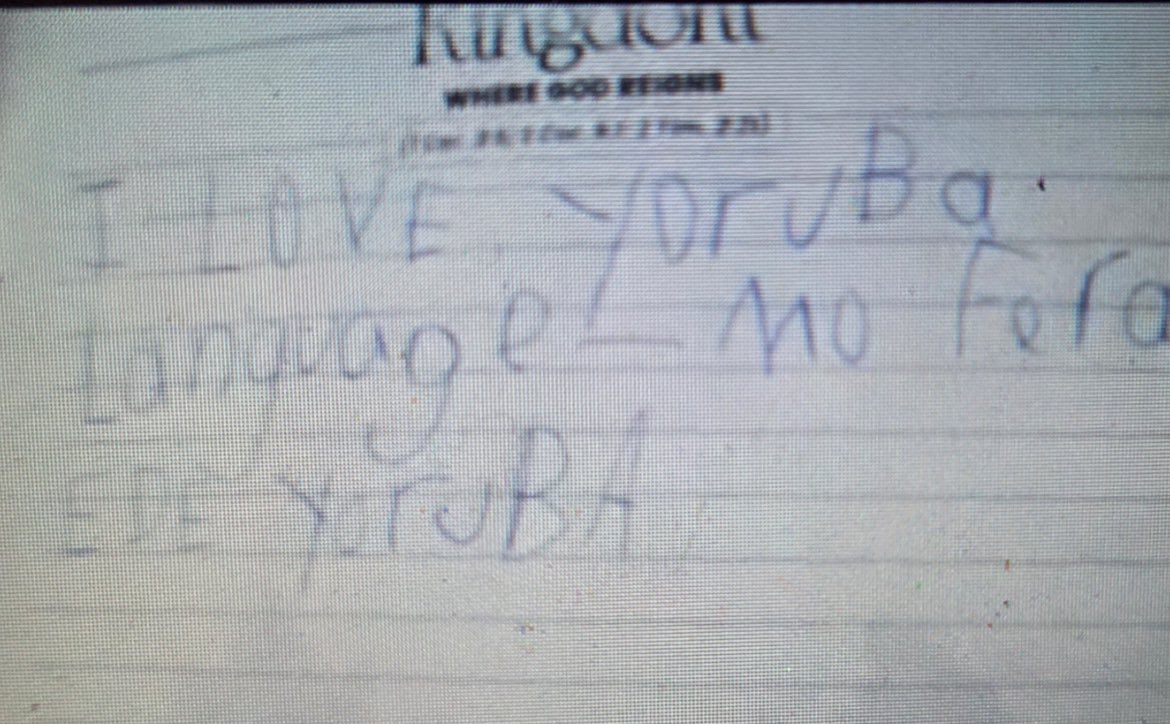 Kingdom
WHERE GOD REIGNS
I LOVE YOruBa
Language - MO Fera
EDE YoruBA